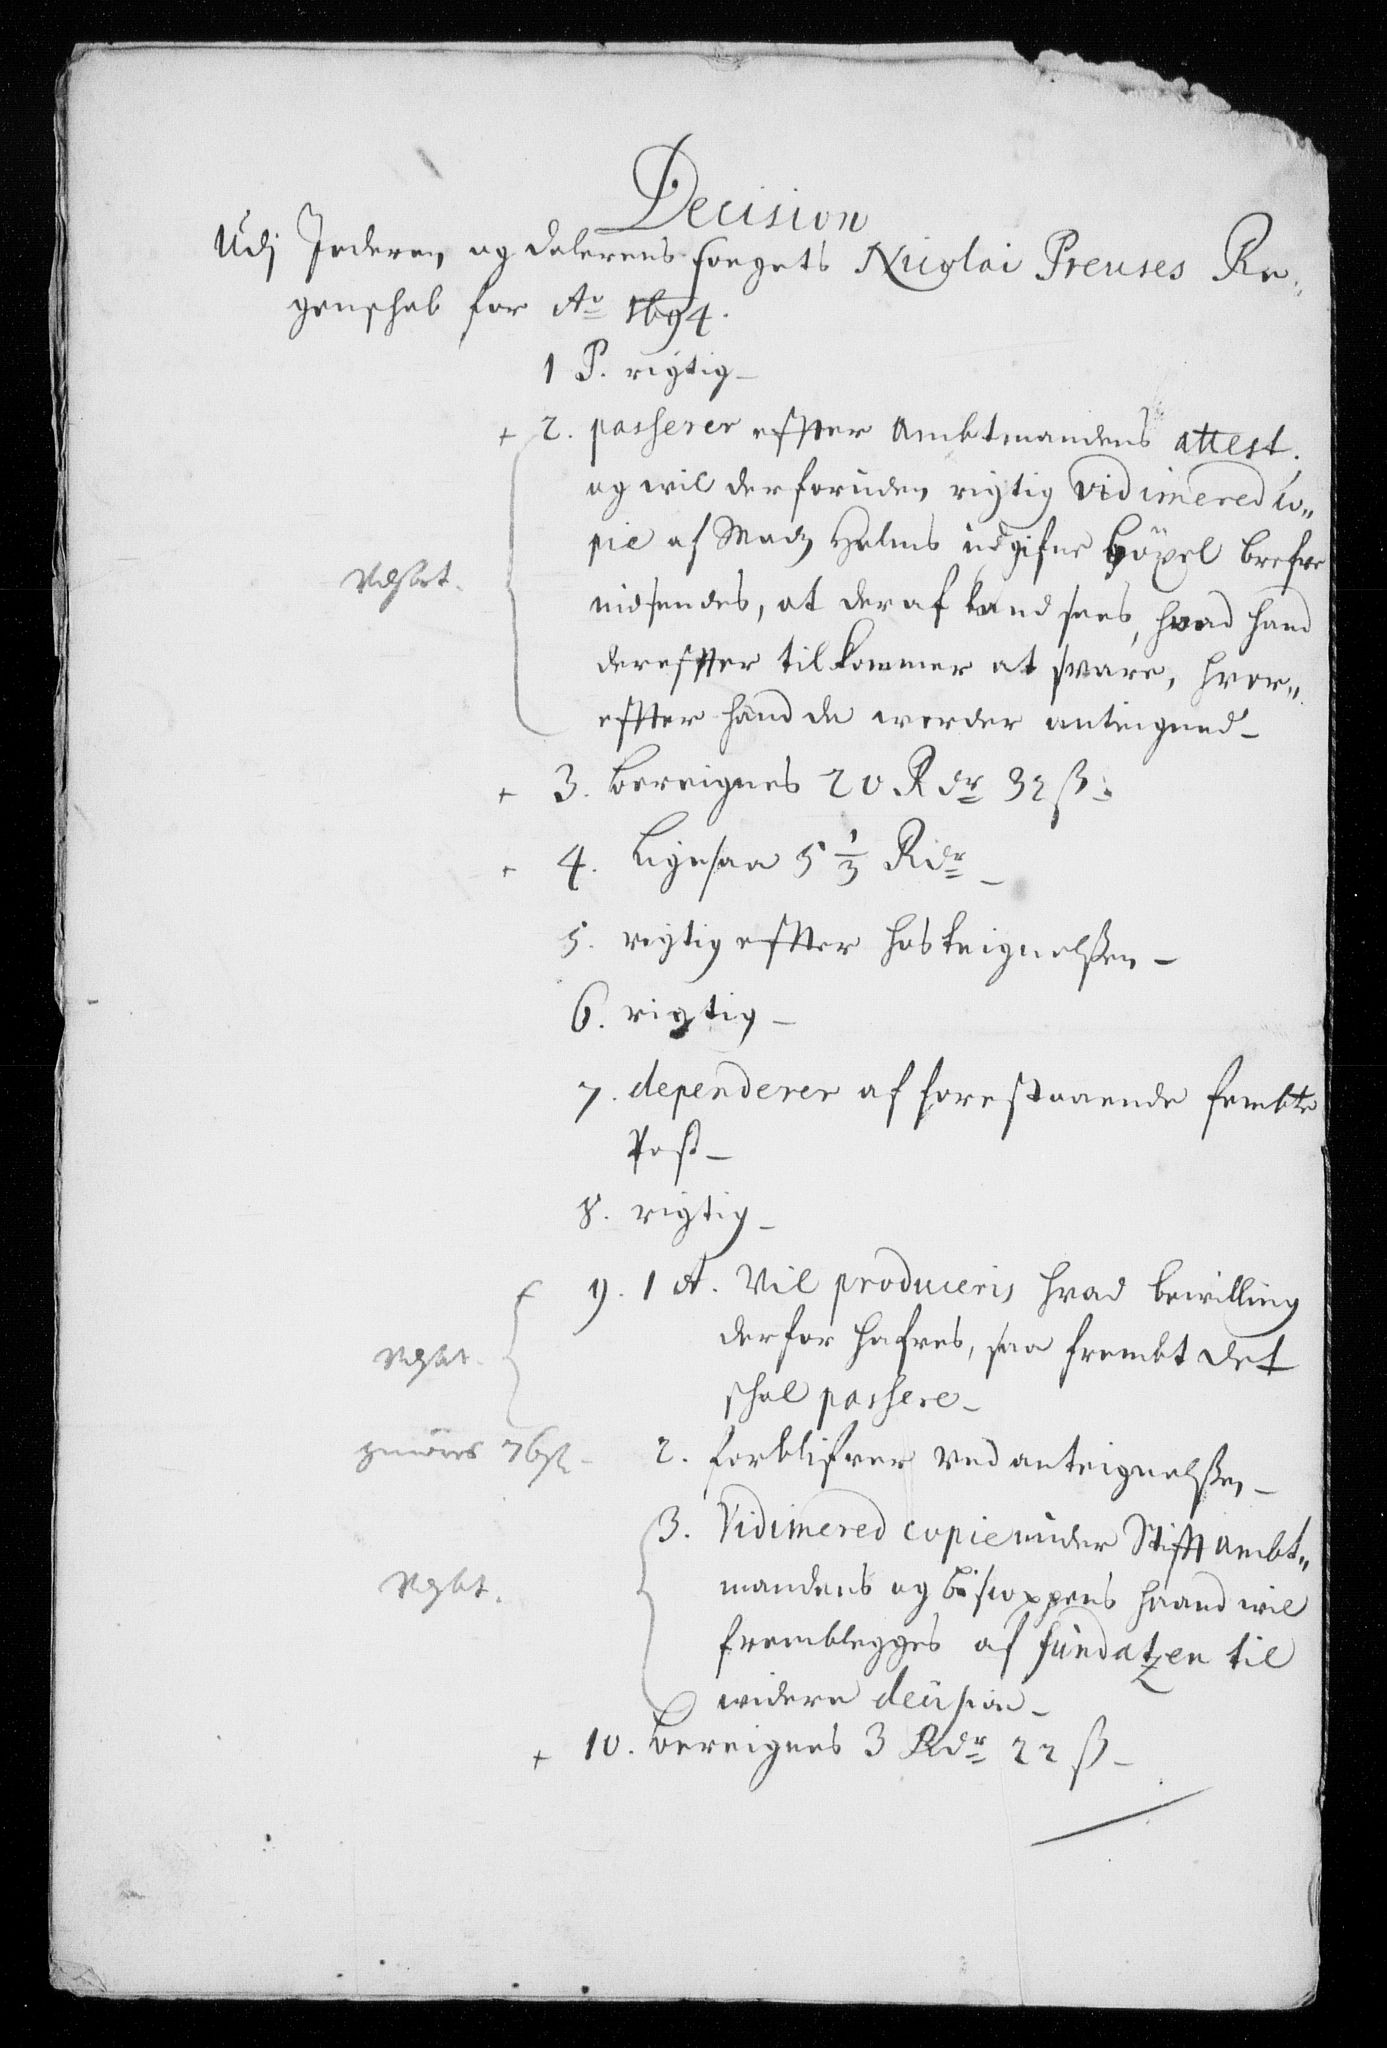 Decision
Udj Jederen og Dalerens fougets Nicolai Preuses Re„
genschab for Ao 1694.
1 P. rigtig –
+ 2. passerer effter Ambtmandens attest,
og wil derforuden rigtig vidimered Co„
pie af Madz Holms udgifne böxel brefve
indsendes, at deraf kand sees, hvad hand
dereffter tilkommer at svare, hvor„
effter hand da worder antegned –
+ 3. bereignes 20 Rdr 32 ß.
+ 4. ligesaa 5 1/3 Rdr –
5. rigtig effter hosteignelßen –
6. rigtig –
7. dependerer af forestaaende fembte
Post –
8. rigtig –
9. 1 A. Vil produceris hvad bewilling
derfor hafves, saa frembt det
schal passere –
2. forblifver ved anteignelßen –
3. Vidimered copie under Stifft Ambt„
mandens og biscoppens haand wil
fremblegges af fundatzen til
widere decision –
+ 10. bereignes 3 Rdr 22 ß –